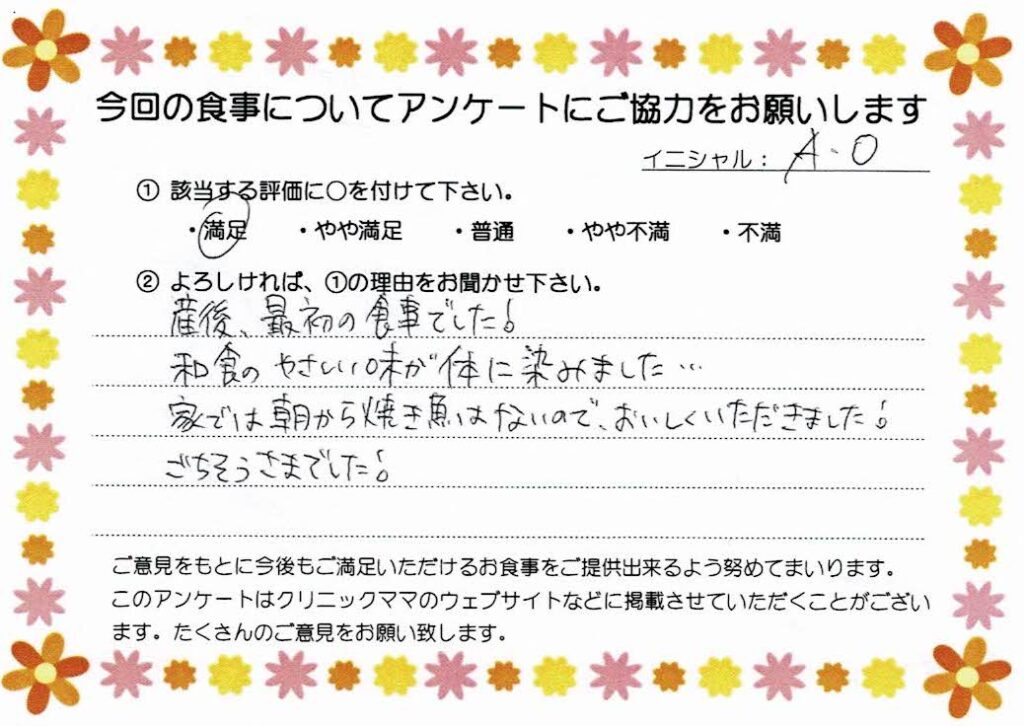 今回の食事についてアンケートにご協力をお願いします
イニシャル： A.O
① 該当する評価に○を付けて下さい。
・満足 ・やや満足 ・普通 ・やや不満 ・不満
② よろしければ、①の理由をお聞かせ下さい。
産後、最初の食事でした！
和食のやさしい味が体に染みました…
家では朝から焼き魚はないので、おいしくいただきました！
ごちそうさまでした！
ご意見をもとに今後もご満足いただけるお食事をご提供出来るよう努めてまいります。
このアンケートはクリニックママのウェブサイトなどに掲載させていただくことがござい
ます。たくさんのご意見をお願い致します。